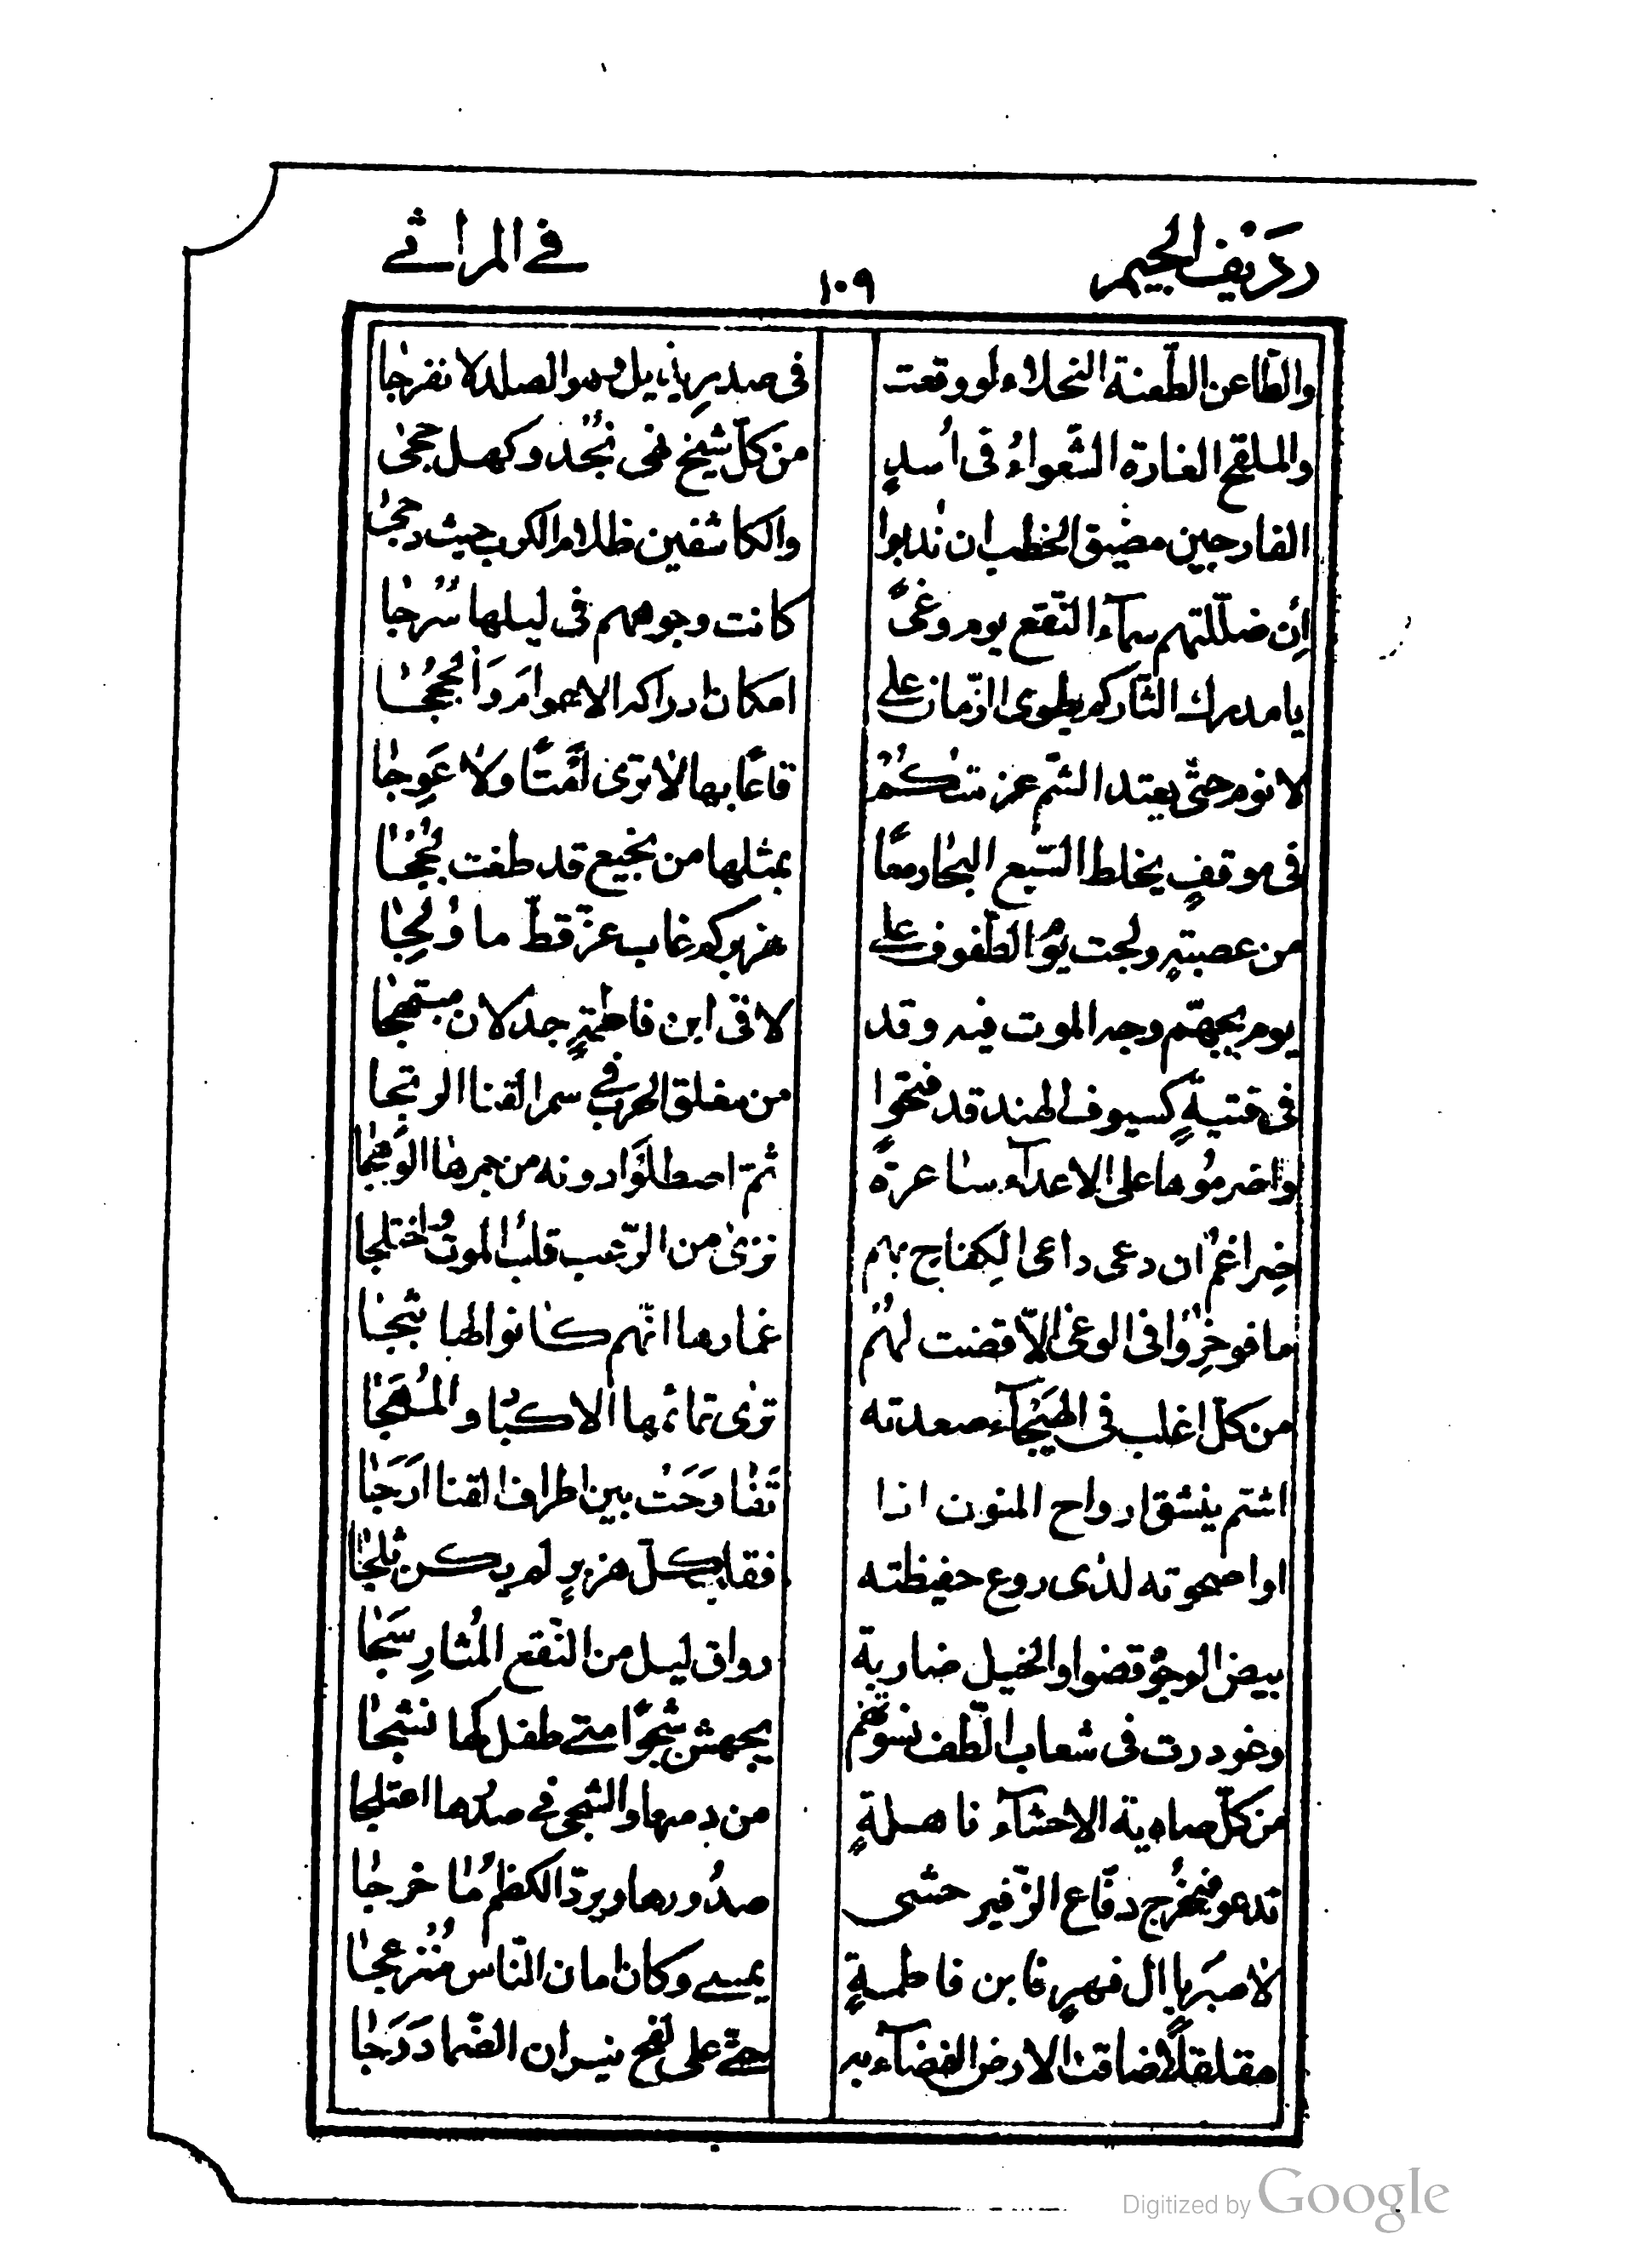 رديف الجيم ١٠٩ في المراثي
والطّاعن الطّعنة النجلاء لو وقعت في صدر يذبل وهو الصلد لانفرجا
والملقح الغارة الشّعواءُ في اُسدٍ من كلّ شيخ نهى نجُد وكهل حجىٰ
الفارجين مضيق الخطب ان نُدبوا والكاشفين ظلام الكرب حيث دجىٰ
اِن ضلّلتهم سمآء النّقع يوم وغىً كانت وجوههم في ليلها سُرُجا
يا مدرك الثّار كم يطوى الزّمان على امكان ادراكه الاعوامَ وَالحُجُجُا
لا نوم حتّى يعتد الشم عزمتكُمُ قاعًا بها لا ترى اَمْتًا ولا عَوِجا
في موقفٍ يخلط السّبع البحار معًا بمثلها من نجيع قد طغت لُجُجُا
من عصبتهٍ ولجت يوم الطّفوف على هزبركم غاب عزّ قطّ ما وُلِجا
يوم تجهّم وجه الموت فيه وقد لاقى ابن فاطمةٍ جدلان مبتهجا
في فتيةٍ كسيوف الهند قد فتحوا من مغلق الحرب في سمر القنا الرتجا
واضرموُها على الاعدآء ساعرةً ثمّ اصطلوَا دونه من جمرها الوَهَجا
ضِراغمُ ان دعى داعى الكِفناج بهم نزى من الرّعب قلبُ الموتُ اختلجا
ما فوخِروُا في الوغى الاّ قضت لهُمُ غمارها انّهم كانوا لها ثبجا
من كلّ اغلب في الهيَجآء صعدته ترى تمائمها الاكبُا والمُهَجا
اشتم ينشق ارواح المنون اذا تَفٰاوَحَتْ بين اطراف القنا اَرَجا
او اصحوته لدٰى روع حفيظته فقلب كلّ هزبرٍ لم يكن ثلِجا
بيض الوجوُ قضوا والخيل ضاربة رواق ليل من النّقع المُثارِ سَجا
وغودرت في شعاب الطّف نسوتهُم يجهشن شجوًا متى طفل لها نشجا
من كلّ صادية الاحشآء ناهلةٍ من دمعها والشجى في صدُرها اعتلجا
تدعو فتخرج دفّاع الزّفير حشى صدُورها ويردّ الكظمُ مٰا خرجا
لا صبرَ يا ال فهرٍ فابن فاطمةٍ يمسى وكان امان النّاس مُنزعجا
مقلقلاً ضاقت الارض الفضآء به حتّى على لفح نيران الضّما دَرَجا
Digitized by Google